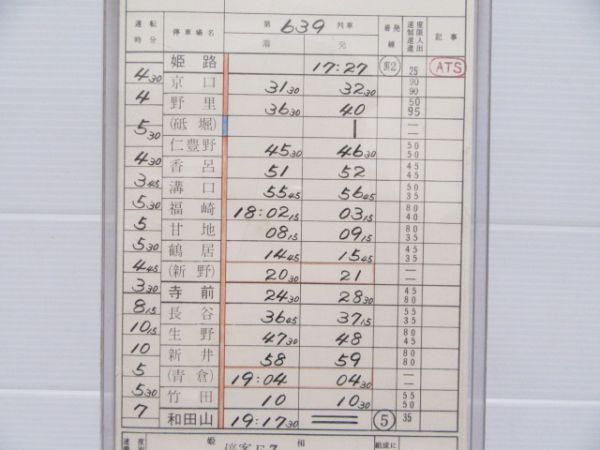 運転時分 停車場名 第 639 列車 着 発 着発線 速度制限 進入進出 記事
姫路 17:27 裏2 25 ATS
4 30 京口 31 30 32 30 90 90
4 野里 36 30 40 50 95
5 30 (砥堀) | — —
仁豊野 45 30 46 30 50 50
4 30 香呂 51 52 45 45
3 45 溝口 55 45 56 45 50 35
5 30 福崎 18:02 15 03 15 80 40
5 甘地 08 15 09 15 80 35
5 30 鶴居 14 45 15 45 80 40
4 45 (新野) 20 30 21 — —
3 30 寺前 24 30 28 30 45 80
8 15 長谷 36 45 37 15 55 35
10 15 生野 47 30 48 80 45
10 新井 58 59 80 80
5 (青倉) 19:04 04 30 — —
5 30 竹田 10 10 30 55 50
7 和田山 19:17 30 5 35